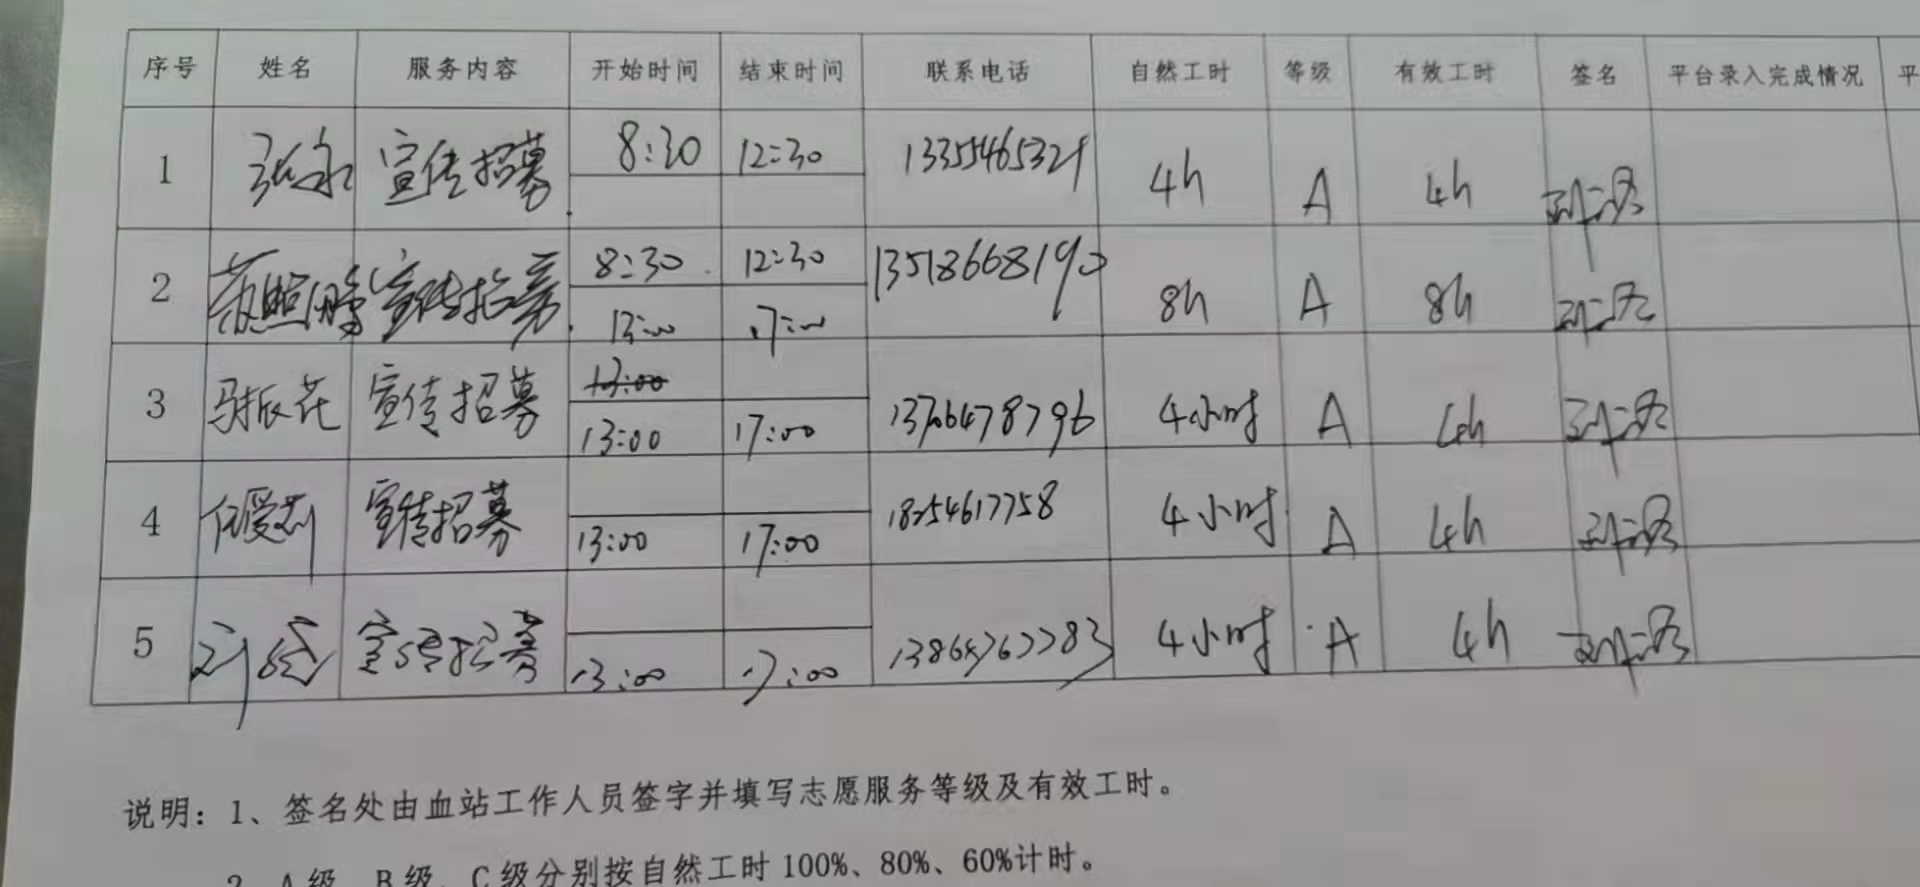 序号 姓名 服务内容 开始时间 结束时间 联系电话 自然工时 等级 有效工时 签名 平台录入完成情况 平
1 张永 宣传招募 8:30 12:30 13355465329 4h A 4h
2 苏照鹏 宣传招募 8:30 12:30 13518668190 8h A 8h
13:00 17:00
3 马振花 宣传招募 13:00
13:00 17:00 13706478796 4小时 A 4h
4 宣传招募 18254617758 4小时 A 4h
13:00 17:00
5 宣传招募 4小时 A 4h
13:00 17:00
说明：1、签名处由血站工作人员签字并填写志愿服务等级及有效工时。
2、A级、B级、C级分别按自然工时100%、80%、60%计时。